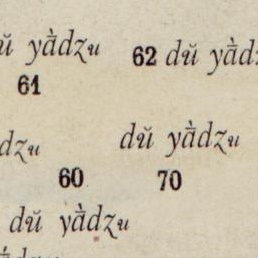 ŭ yȁdzu 62 dŭ yȁdz
61
dzu dŭ yȁdzu
60 70
dŭ yȁdzu